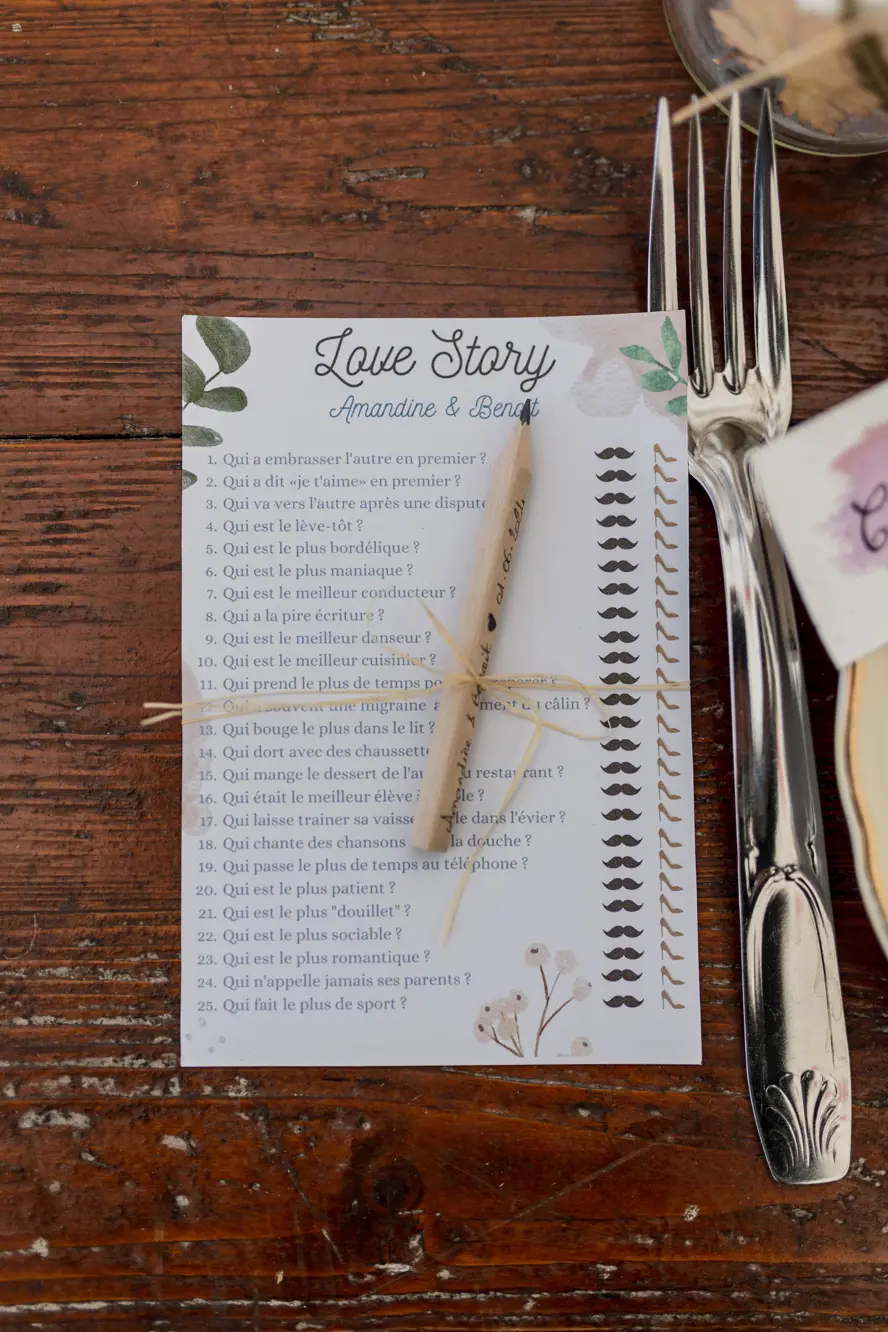 Love Story
Amandine & Benoit
1. Qui a embrasser l'autre en premier ?
2. Qui a dit «je t'aime» en premier ?
3. Qui va vers l'autre après une dispute
4. Qui est le lève-tôt ?
5. Qui est le plus bordélique ?
6. Qui est le plus maniaque ?
7. Qui est le meilleur conducteur ?
8. Qui a la pire écriture ?
9. Qui est le meilleur danseur ?
10. Qui est le meilleur cuisinier ?
11. Qui prend le plus de temps préparer ?
12. Qui a souvent une migraine du câlin ?
13. Qui bouge le plus dans le lit ?
14. Qui dort avec des chaussette
15. Qui mange le dessert de restaurant ?
16. Qui était le meilleur élève ?
17. Qui laisse trainer sa dans l'évier ?
18. Qui chante des chansons la douche ?
19. Qui passe le plus de temps au téléphone ?
20. Qui est le plus patient ?
21. Qui est le plus "douillet" ?
22. Qui est le plus sociable ?
23. Qui est le plus romantique ?
24. Qui n'appelle jamais ses parents ?
25. Qui fait le plus de sport ?
Amandine &